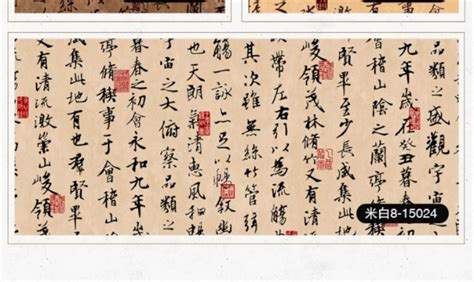 品類之盛觀宇宙之
九年歲在癸丑暮春
會稽山陰之蘭亭
賢畢至少長咸集此地
峻領茂林脩竹又有清
帶左右引以為流觴
其次雖無絲竹管弦
觴一詠上足以暢叙幽
也天朗氣清惠風和暢
宙之大俯察品類之
暮春之初會永和九年
亭脩稧事于會稽山
咸集此地有也群賢畢
又有清流激崇山峻領
米白8-15024